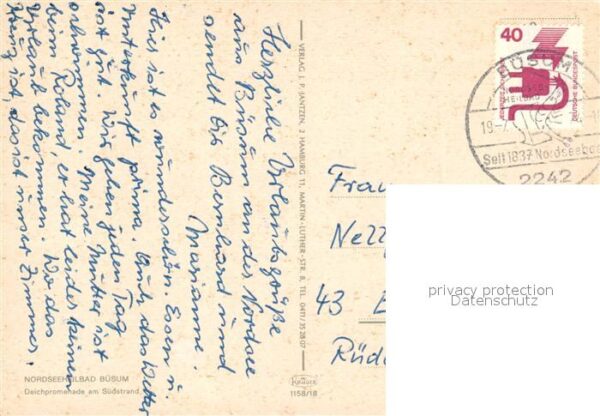 Herzliche Urlaubsgrüße
aus Büsum an der Nordsee
sendet Dir Bernhard und
Marianne.
Hier ist es wunderschön. Essen u.
Unterkunft prima. Auch das Wetter
ist gut. Wir gehen jeden Tag
schwimmen. Meine Mutter ist
beim Roland, er hat leider keinen
Urlaub bekommen. Wo das
Kreuz ist, da ist unser Zimmer.
NORDSEEHEILBAD BÜSUM
Deichpromenade am Südstrand
VERLAG J. P. JANTZEN, 2 HAMBURG 11, MARTIN-LUTHER-STR. 8, TEL. 0411/35 28 07
KRÜGER
1158/18
40
DEUTSCHE BUNDESPOST
BÜSUM
Seit 1837 Nordseebad
2242
Frau
Nelly
43 E
Rüde
privacy protection
Datenschutz